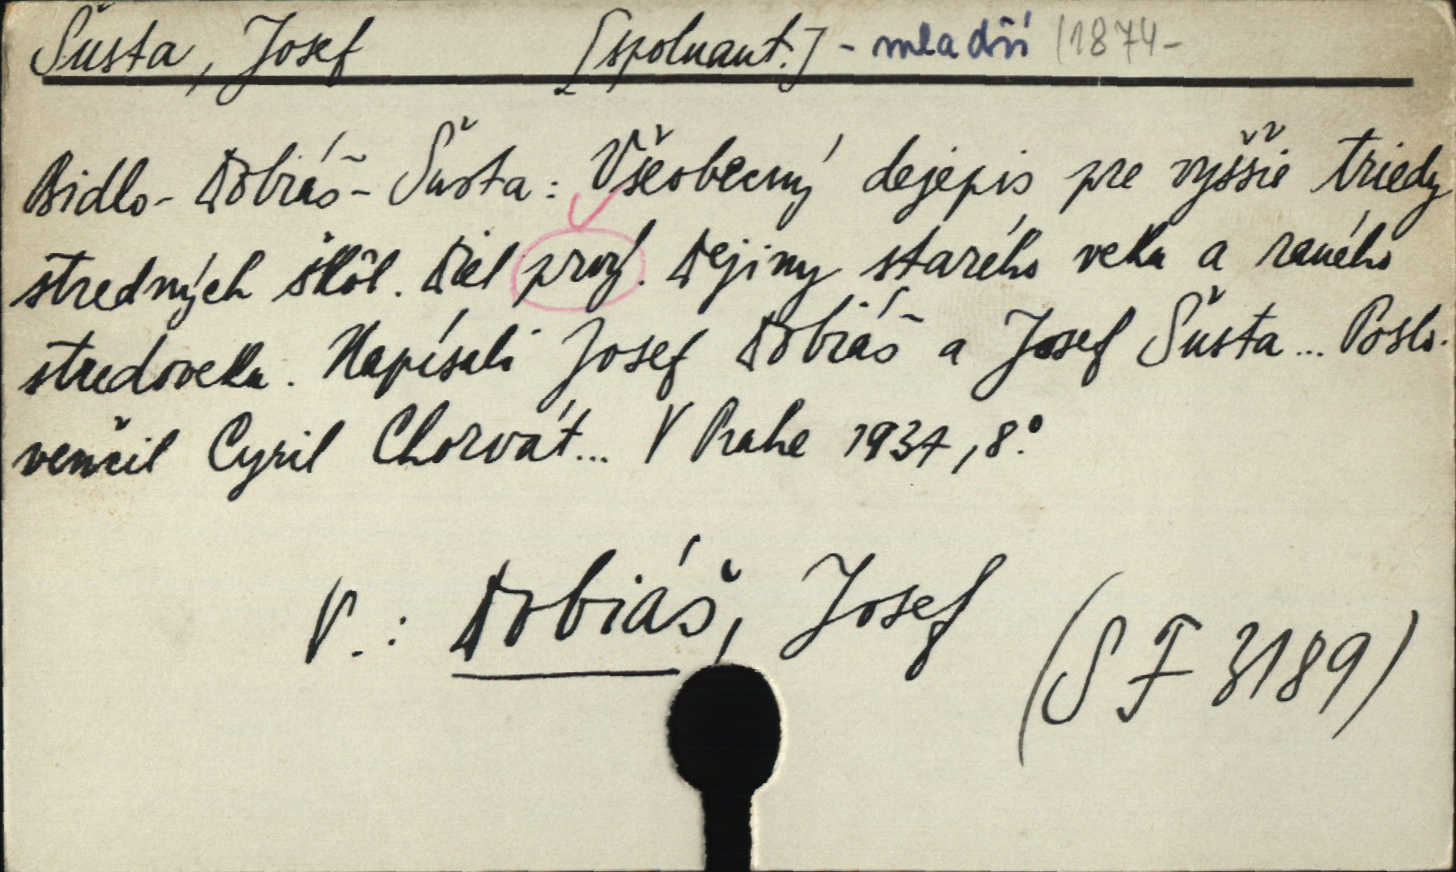 Šusta, Josef [spoluaut.] - mladší (1874-
Bidlo - Dobiáš - Šusta: Všeobecný dejepis pre vyššie triedy
stredných škôl. Diel prvý. Dejiny starého veku a raného
stredoveku. Napísali Josef Dobiáš a Josef Šusta... Poslo-
venčil Cyril Chorvát... V Prahe 1934, 8°.
V.: Dobiáš, Josef
(SF 3189)